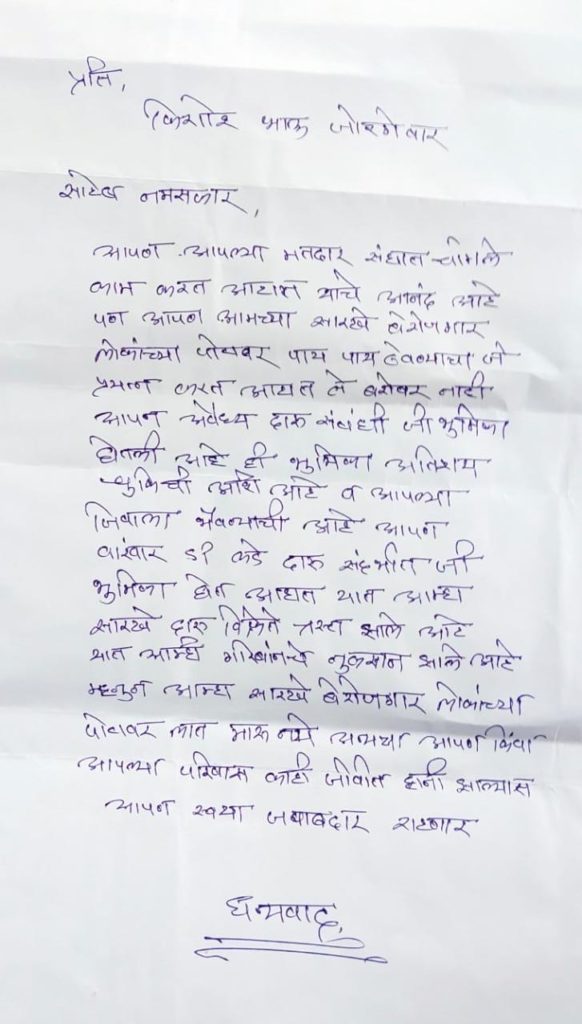 प्रति,
किशोर भाऊ जोरगेवार
साहेब नमसकार,
आपन आपल्या मतदार संघात चांगले
काम करत आहात याचे आनंद आहे
पन आपन आमच्या सारखे बेरोजगार
लोकांच्या पोटावर पाय ठेवन्याचा जो
प्रयत्न करत आहात ते बरोबर नाही
आपन अवैध्य दारु संबंधी जी भुमिका
घेतली आहे ही भुमिका अतिशय
चुकिची अशि आहे व आपल्या
जिवाला भोवन्याची आहे आपन
वारंवार SP कडे दारु संदर्भात जी
भुमिका घेत आहात यात आम्हा
सारखे दारु विक्रेते त्रस्त झाले आहे
यात आम्हा गरिबांनचे नुकसान झाले आहे
म्हनुन आम्हा सारखे बेरोजगार लोकांच्या
पोटावर लात मारु नये अन्यथा आपन किंवा
आपल्या परिवारास काही जीवीत हानी झाल्यास
आपन स्वथा जबाबदार राहनार
धन्यवाद,